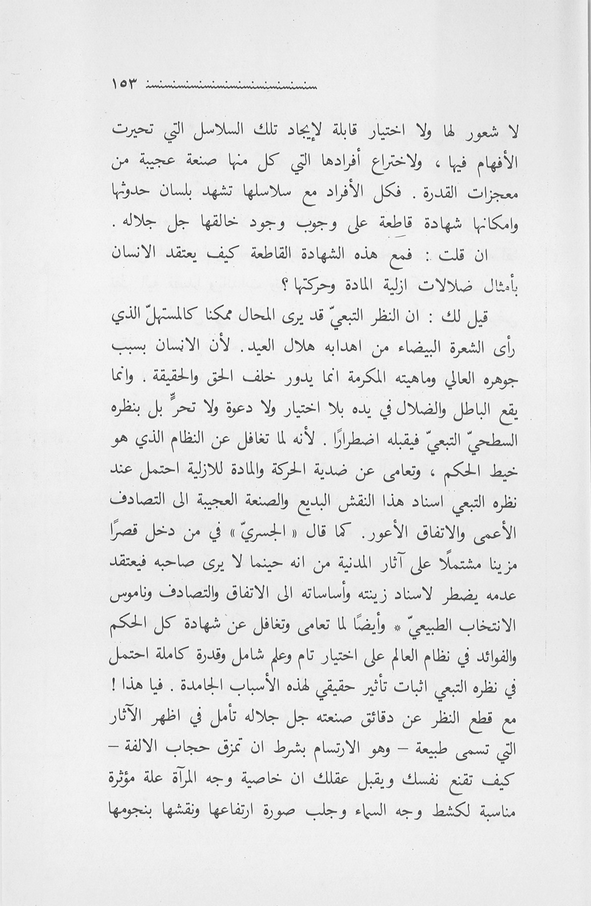 ١٥٣
لا شعور لها ولا اختيار قابلة لإيجاد تلك السلاسل التي تحيرت
الأفهام فيها ، ولاختراع أفرادها التي كل منها صنعة عجيبة من
معجزات القدرة . فكل الأفراد مع سلاسلها تشهد بلسان حدوثها
وامكانها شهادة قاطعة على وجوب وجود خالقها جل جلاله .
ان قلت : فمع هذه الشهادة القاطعة كيف يعتقد الانسان
بأمثال ضلالات ازلية المادة وحركتها ؟
قيل لك : ان النظر التبعيّ قد يرى المحال ممكنا كالمستهلّ الذي
رأى الشعرة البيضاء من اهدابه هلال العيد . لأن الانسان بسبب
جوهره العالي وماهيته المكرمة انما يدور خلف الحق والحقيقة . وانما
يقع الباطل والضلال في يده بلا اختيار ولا دعوة ولا تحرٍّ بل بنظره
السطحيّ التبعيّ فيقبله اضطرارًا . لأنه لما تغافل عن النظام الذي هو
خيط الحكم ، وتعامى عن ضدية الحركة والمادة للازلية احتمل عند
نظره التبعي اسناد هذا النقش البديع والصنعة العجيبة الى التصادف
الأعمى والاتفاق الأعور. كما قال « الجسريّ » في من دخل قصرًا
مزينا مشتملًا على آثار المدنية من انه حينما لا يرى صاحبه فيعتقد
عدمه يضطر لاسناد زينته وأساساته الى الاتفاق والتصادف وناموس
الانتخاب الطبيعيّ * وأيضًا لما تعامى وتغافل عن شهادة كل الحكم
والفوائد في نظام العالم على اختيار تام وعلم شامل وقدرة كاملة احتمل
في نظره التبعي اثبات تأثير حقيقي لهذه الأسباب الجامدة . فيا هذا !
مع قطع النظر عن دقائق صنعته جل جلاله تأمل في اظهر الآثار
التي تسمى طبيعة – وهو الارتسام بشرط ان تمزق حجاب الالفة –
كيف تقنع نفسك ويقبل عقلك ان خاصية وجه المرآة علة مؤثرة
مناسبة لكشط وجه السماء وجلب صورة ارتفاعها ونقشها بنجومها